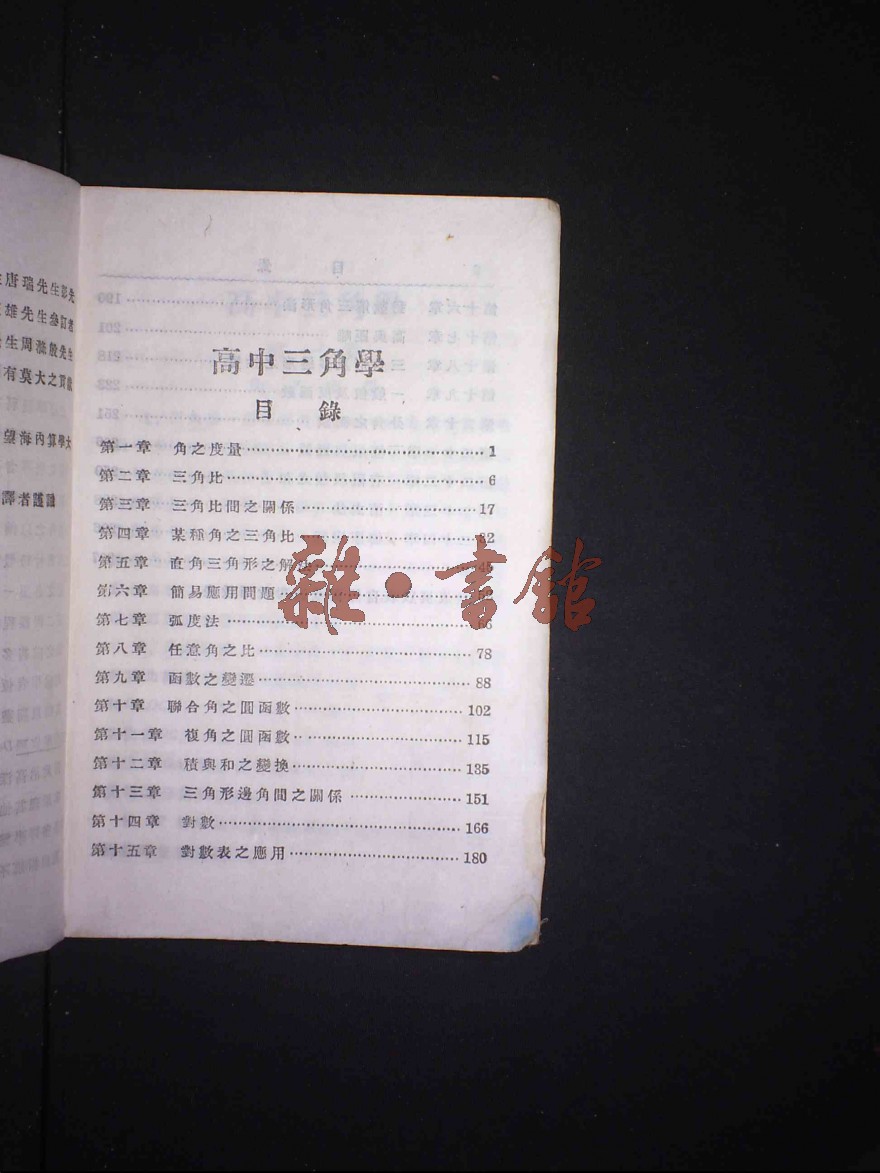 高中三角學
目錄
第一章 角之度量 1
第二章 三角比 6
第三章 三角比間之關係 17
第四章 某種角之三角比 32
第五章 直角三角形之解法
第六章 簡易應用問題
第七章 弧度法 66
第八章 任意角之比 78
第九章 函數之變遷 88
第十章 聯合角之圓函數 102
第十一章 複角之圓函數 115
第十二章 積與和之變換 135
第十三章 三角形邊角間之關係 151
第十四章 對數 166
第十五章 對數表之應用 180
唐瑞先生彭先
雄先生參訂
生周
有莫大之貢獻
望海內算學大
譯者謹識
雜·書館